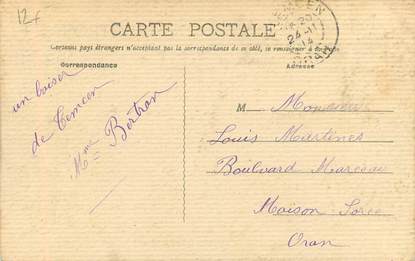 12f
CARTE POSTALE
Certains pays étrangers n'acceptent pas la correspondance de ce côté, se renseigner à
Correspondance
Adresse
un baiser
de Temcen
Mme Bertran
M Monsieur
Louis Martines
Boulvard Marceau
Maison
Oran
24-11
14
ORAN